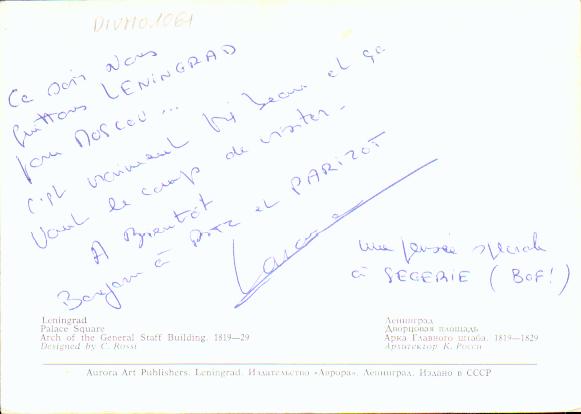 DIVNO.1061
Ce soir Nous
quittons LENINGRAD
pour MOSCOU ...
C'est vraiment très beau et ça
Vaut le coup de visiter.
A Bientôt
Bonjour à et PARIZOT
une pensée spéciale
à SEGERIE ( BOF! )
Leningrad
Palace Square
Arch of the General Staff Building. 1819—29
Designed by C. Rossi
Ленинград
Дворцовая площадь
Арка Главного штаба. 1819—1829
Архитектор К. Росси
Aurora Art Publishers. Leningrad. Издательство «Аврора». Ленинград. Издано в СССР